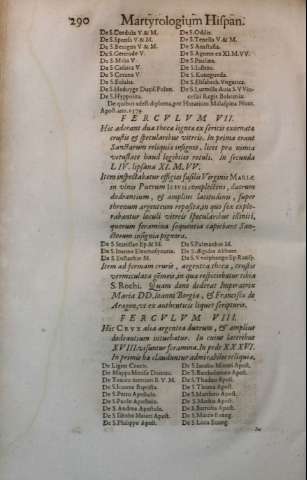 290 Martyrologium Hispan.
De S. Cordula V & M. De S. Odilia.
De S. Speosa V & M. De S. Tenella V & M.
De S. Benigna V & M. De S. Anastasia.
De S. Gertrude V. De S. Agnete ex XI.M.VV.
De S. Mida V. De S. Paulina.
De S. Cassara V. De S. Iustina.
De S. Corona V De S. Kunegunda.
De S. Eulalia. De S. Elisabeth Vngarica.
De S. Heduvige Duciss. Polon. De S. Ludmilla Auia S. VVin
De S. Hyppolita. ceslai Regis Bohemiæ.
De quibus adest diploma, per Horatium Malaspina Nunt.
Apost. ann. 1579.
FERCVLVM VII.
Hic adorant dua theca lignea ex sericis exornata
crustis & specularibus vitreis. In prima extant
Sanctarum reliquia insignes, licet pra nimia
vetustate haud legibiles rotuli, in secunda
LIV. lipsana XI. M. VV.
Item inspectabatur effigies fusilis Virginis MARIÆ
in vinis Puerum IESVM complectens, duorum
dodrantium, & amplius latitudinis, super
phrebeum argenteum reposita, in quo sex explo-
rabantur loculi vitreis specularibus distincti,
quorum foramina sequentia capiebant San-
ctorum insignia pignora.
De S. Stanislao Ep & M. De S. Palmachio M.
De S. Ioanne Eleemosynario. De S. Ægidio Abbate.
De S. Eustachio M. De S. Vvolphango Ep Ratisp.
Item ad formam crucis, argentea theca, crustis
vermiculata gemmis, in qua respectabatur tibia
S. Rochi. Quam dono dederat Imperatrix
Maria DD. Ioanni Borgia, & Francisca de
Aragon, vt ex authenticis liquet scripturis.
FERCVLVM VIII.
Hic CRVX alia argentea duorum, & amplius
dodrantium intuebatur. In cuius lateribus
XVIII. visuntur foramina. In pede XXXVI.
In primis hæ claudũntur admirabiles reliquia.
De Ligno Crucis. De S. Iacobo Minori Apost.
De Mappa Mensæ Domini. De S. Bartholomæo Apost.
De Tunica interiori B. V. M. De S. Thadæo Apost.
De S. Ioanne Baptista. De S. Thoma Apost.
De S. Petro Apostolo. De S. Matthæo Apost.
De S. Paulo Apostolo. De S. Mathia Apost.
De S. Andrea Apostolo. De S. Barnaba Apost.
De S. Iacobo Maiori Apost. De S. Marco Euang.
De S. Philippo Apost. De S. Luca Euang.